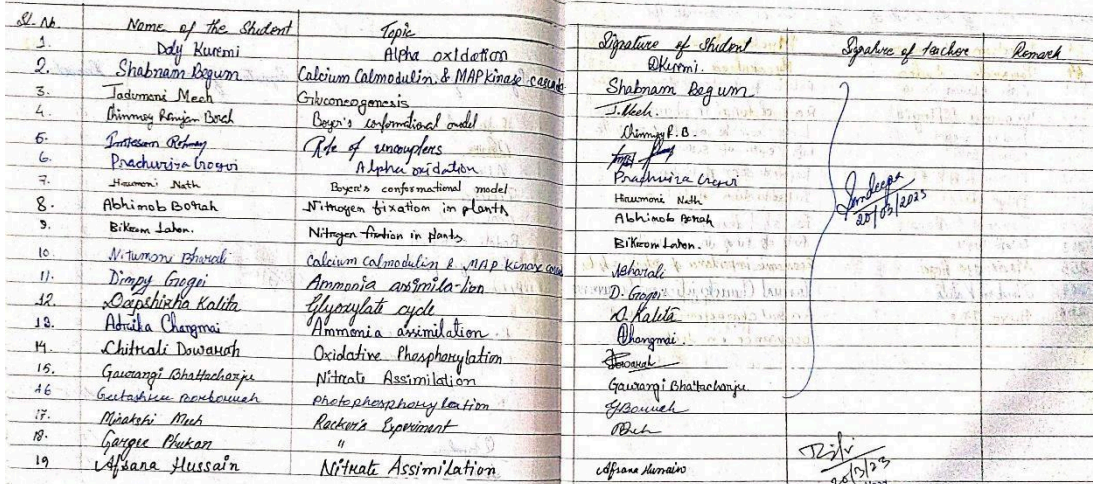 Sl. No. Name of the Student Topic Signature of student Signature of teacher Remark
1. Doly Kuremi Alpha oxidation DKuremi.
2. Shabnam Begum Calcium Calmodulin & MAP kinase cascade Shabnam Begum
3. Jadumoni Mech Gluconeogenesis J. Mech.
4. Chinmoy Ranjan Borah Boyer's conformational model Chinmoy R. B.
5. Role of uncouplers
6. Prachurjya Gogoi Alpha oxidation Prachurjya Gogoi
7. Hiramoni Nath Boyer's conformational model Hiramoni Nath
Sandeepa
20/03/2023
8. Abhinob Borah Nitrogen fixation in plants Abhinob Borah
9. Bikrom Lahon. Nitrogen fixation in plants. Bikrom Lahon.
10. Nitumoni Bharali Calcium Calmodulin & MAP kinase NBharali
11. Dimpy Gogoi Ammonia assimila-tion D. Gogoi
12. Deepshikha Kalita Glyoxylate cycle D. Kalita
13. Adrika Changmai Ammonia assimilation. AChangmai.
14. Chitrali Dowarah Oxidative Phosphorylation Dowarah
15. Gaurangi Bhattacharjee Nitrate Assimilation Gaurangi Bhattacharjee
16 Geetashree Borborruah photophosphorylation
17. Minakshi Mech Racker's Experiment
18. Gargee Phukan "
19 Afsana Hussain Nitrate Assimilation Afsana Hussain
20/3/23